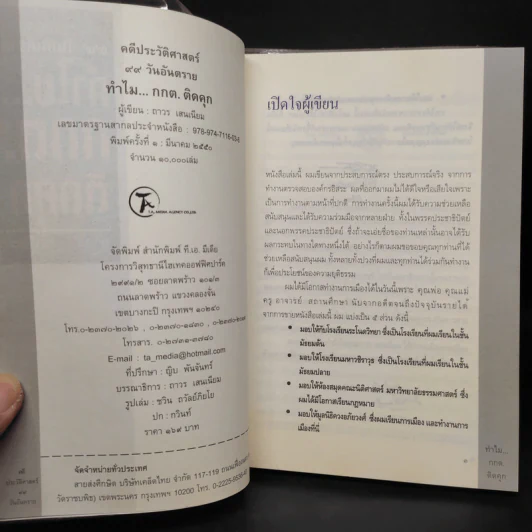 คดีประวัติศาสตร์
๙๙ วันอันตราย
ทำไม... กกต. ติดคุก
ผู้เขียน : ถาวร เสนเนียม
เลขมาตรฐานสากลประจำหนังสือ : 978-974-7116-03-6
พิมพ์ครั้งที่ ๑ : มีนาคม ๒๕๕๐
จำนวน ๑๐,๐๐๐เล่ม
T.A. MEDIA AGENCY CO.,LTD.
จัดพิมพ์ สำนักพิมพ์ ที.เอ. มีเดีย
โครงการวิสุทธานีไฮเทคออฟฟิศปาร์ค
๒๙๙/๒ ซอยลาดพร้าว ๑๐๑/๓
ถนนลาดพร้าว แขวงคลองจั่น
เขตบางกะปิ กรุงเทพฯ ๑๐๒๔๐
โทรสาร. ๐-๒๗๓๑-๓๗๔๐
E-mail : ta_media@hotmail.com
ที่ปรึกษา : ญิบ พันจันทร์
บรรณาธิการ : ถาวร เสนเนียม
รูปเล่ม : ชวิน ถวัลย์ภิยโย
ปก : กวินท์
ราคา ๑๖๙ บาท
จัดจำหน่ายทั่วประเทศ
สายส่งศึกษิต บริษัทเคล็ดไทย จำกัด 117-119 ถนนเฟื่องนคร
วัดราชบพิธ) เขตพระนคร กรุงเทพฯ 10200 โทร. 0-2225-9536-40
คดี
ประวัติศาสตร์
๙๙
วันอันตราย
เปิดใจผู้เขียน
หนังสือเล่มนี้ ผมเขียนจากประสบการณ์ตรง ประสบการณ์จริง จากการ
ทำงานตรวจสอบองค์กรอิสระ ผลที่ออกมาผมไม่ได้ดีใจหรือเสียใจเพราะ
เป็นการทำงานตามหน้าที่ปกติ การทำงานครั้งนี้ผมได้รับความช่วยเหลือ
สนับสนุนและได้รับความร่วมมือจากหลายฝ่าย ทั้งในพรรคประชาธิปัตย์
และนอกพรรคประชาธิปัตย์ ซึ่งถ้าจะเอ่ยชื่อของท่านเหล่านั้นอาจได้รับ
ผลกระทบในทางใดทางหนึ่งได้ อย่างไรก็ตามผมขอขอบคุณทุกท่านที่ได้
ช่วยเหลือสนับสนุนผม ทั้งหลายทั้งปวงที่ผมและทุกท่านได้ร่วมกันทำงาน
ก็เพื่อประโยชน์ของความยุติธรรม
ผมได้มีโอกาสทำงานการเมืองได้ในวันนี้เพราะ คุณพ่อ คุณแม่
ครู อาจารย์ สถานศึกษา นับจากอดีตจนถึงปัจจุบันรายได้
จากการขายหนังสือเล่มนี้ ผม แบ่งเป็น ๕ ส่วน ดังนี้
• มอบให้กับโรงเรียนระโนดวิทยา ซึ่งเป็นโรงเรียนที่ผมเรียนในชั้น
มัธยมต้น
• มอบให้โรงเรียนมหาวชิราวุธ ซึ่งเป็นโรงเรียนที่ผมเรียนในชั้น
มัธยมปลาย
• มอบให้ห้องสมุดคณะนิติศาสตร์ มหาวิทยาลัยธรรมศาสตร์ ซึ่ง
ผมได้มีโอกาสเรียนกฎหมาย
• มอบให้มูลนิธิควงอภัยวงศ์ ซึ่งผมเรียนการเมือง และทำงานการ
เมืองที่นี่
ทำไม...
กกต
ติดคุก